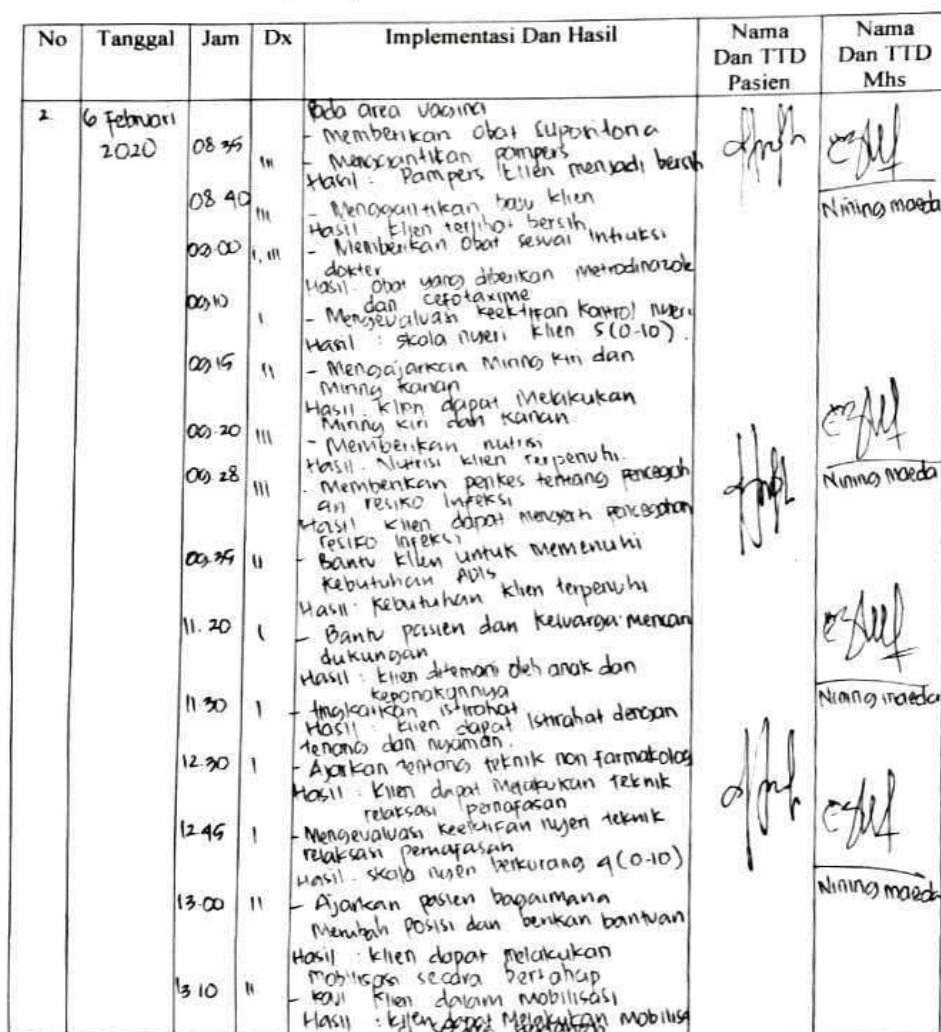 No Tanggal Jam Dx Implementasi Dan Hasil Nama Dan TTD Pasien Nama Dan TTD Mhs
2. 6 Februari 2020
Pada area vagina
08 35 III - Memberikan obat suporitoria
- Menggantikan pampers
Hasil : Pampers klien menjadi bersih
08 40 III - Menggantikan baju klien
Hasil : klien terlihat bersih
09.00 I, III - Memberikan obat sesuai intruksi
dokter
Hasil : Obat yang diberikan Metrodinazole
dan cefotaxime
09.10 I - Mengevaluasi keektifan kontrol nyeri
Hasil : skala nyeri klien 5 (0-10).
09.15 II - Mengajarkan Miring kiri dan
Miring kanan
Hasil : klien dapat Melakukan
Miring kiri dan kanan.
09.20 III - Memberikan nutrisi
Hasil : Nutrisi klien terpenuhi.
09.28 III - Memberikan penkes tentang pencegah
an resiko infeksi
Hasil : klien dapat mengerti pencegahan
resiko infeksi
09.35 II - Bantu klien untuk memenuhi
kebutuhan ADLs
Hasil : Kebutuhan klien terpenuhi
11.20 I - Bantu pasien dan keluarga mencari
dukungan
Hasil : klien ditemani oleh anak dan
keponakannya
11.30 I - Tingkatkan istirahat
Hasil : klien dapat istirahat dengan
tenang dan nyaman.
12.30 I - Ajarkan tentang teknik non farmakologi
Hasil : Klien dapat Melakukan teknik
relaksasi pernafasan
12.45 I - Mengevaluasi keefektifan nyeri teknik
relaksasi pernafasan
Hasil : skala nyeri berkurang 4 (0-10)
13.00 II - Ajarkan pasien bagaimana
Merubah posisi dan berikan bantuan
Hasil : klien dapat melakukan
mobilisasi secara bertahap
13 10 II - Kaji klien dalam mobilisasi
Hasil : klien dapat Melakukan mobilisa
Nining maeda
Nining maeda
Nining maeda
Nining maeda